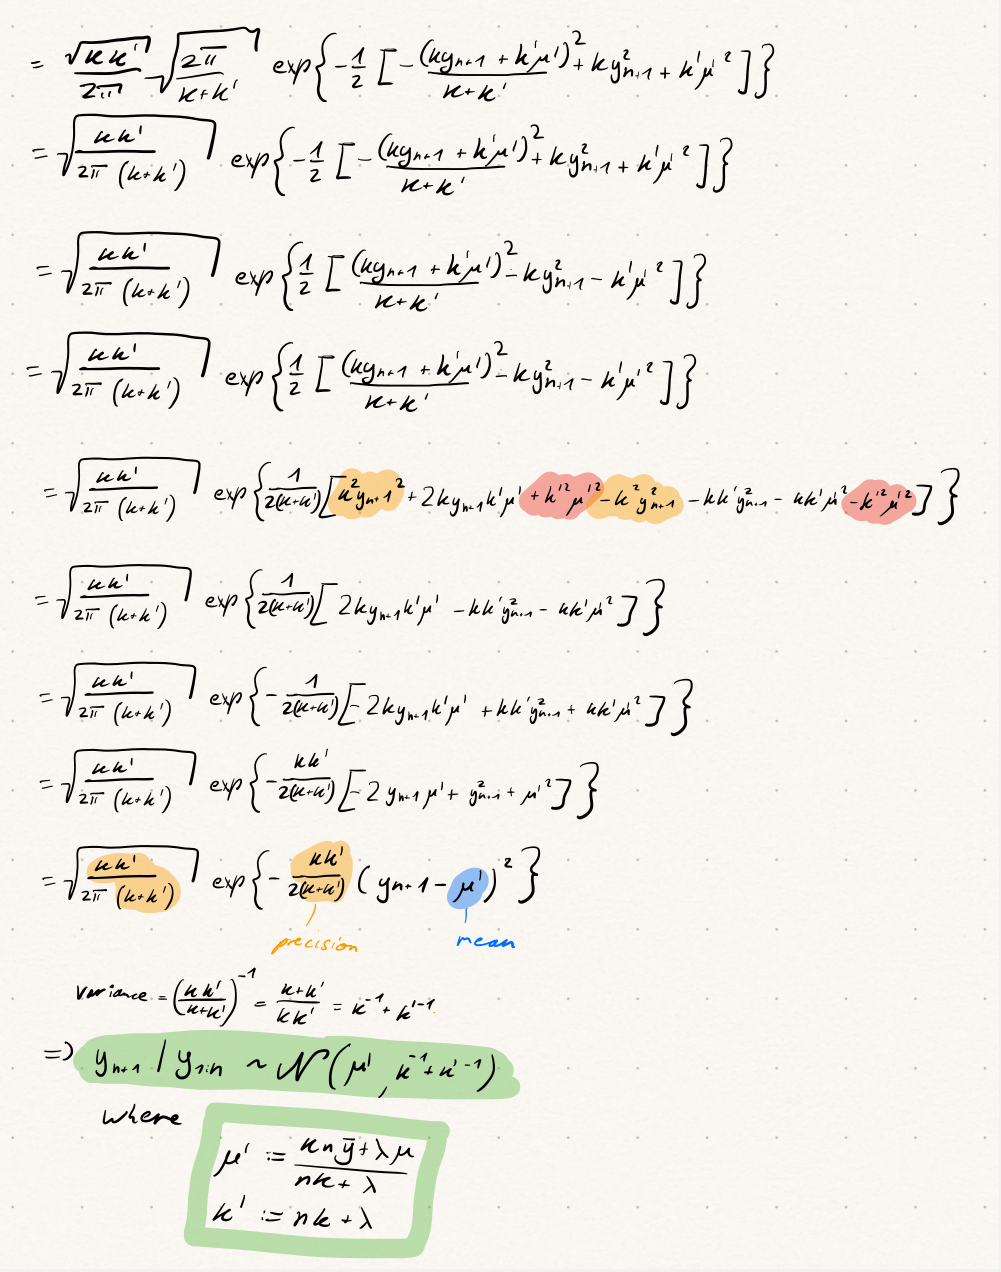 = √(κκ')/2π √(2π/(κ+κ')) exp{-1/2 [-(κy_{n+1} + κ'μ')²/(κ+κ') + κy²_{n+1} + κ'μ'²]}
= √(κκ'/(2π (κ+κ'))) exp{-1/2 [-(κy_{n+1} + κ'μ')²/(κ+κ') + κy²_{n+1} + κ'μ'²]}
= √(κκ'/(2π (κ+κ'))) exp{1/2 [(κy_{n+1} + κ'μ')²/(κ+κ') - κy²_{n+1} - κ'μ'²]}
= √(κκ'/(2π (κ+κ'))) exp{1/2 [(κy_{n+1} + κ'μ')²/(κ+κ') - κy²_{n+1} - κ'μ'²]}
= √(κκ'/(2π (κ+κ'))) exp{1/(2(κ+κ')) [κ²y_{n+1}² + 2κy_{n+1}κ'μ' + κ'²μ'² - κ²y²_{n+1} - κκ'y²_{n+1} - κκ'μ'² - κ'²μ'²]}
= √(κκ'/(2π (κ+κ'))) exp{1/(2(κ+κ')) [2κy_{n+1}κ'μ' - κκ'y²_{n+1} - κκ'μ'²]}
= √(κκ'/(2π (κ+κ'))) exp{-1/(2(κ+κ')) [-2κy_{n+1}κ'μ' + κκ'y²_{n+1} + κκ'μ'²]}
= √(κκ'/(2π (κ+κ'))) exp{-κκ'/(2(κ+κ')) [-2y_{n+1}μ' + y²_{n+1} + μ'²]}
= √(κκ'/(2π (κ+κ'))) exp{-κκ'/(2(κ+κ')) (y_{n+1} - μ')²}
precision mean
Variance = (κκ'/(κ+κ'))^{-1} = (κ+κ')/(κκ') = κ^{-1} + κ'^{-1}
=> y_{n+1} | y_{1:n} ~ N(μ', κ^{-1} + κ'^{-1})
where
μ' := (κnȳ + λμ)/(nκ + λ)
κ' := nκ + λ